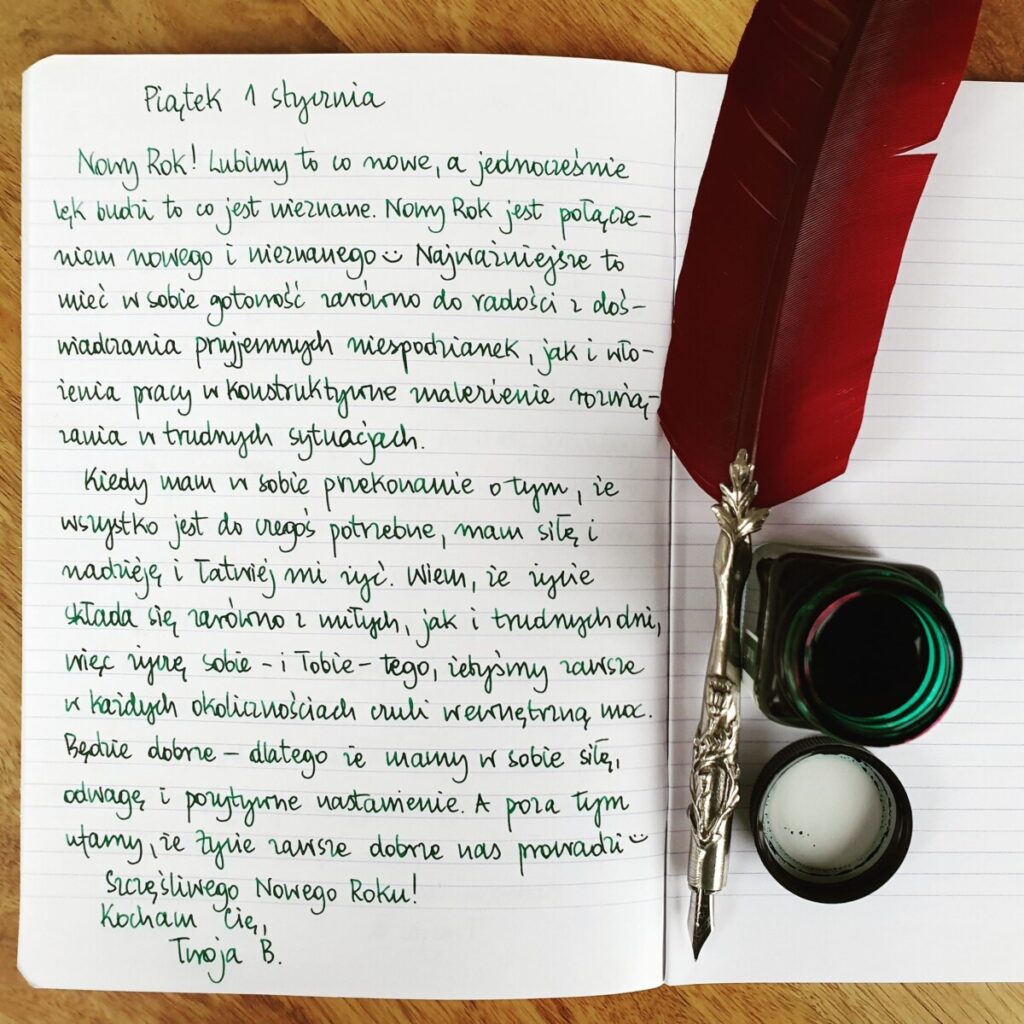 Piątek 1 stycznia
Nowy Rok! Lubimy to co nowe, a jednocześnie
lęk budzi to co jest nieznane. Nowy Rok jest połącze-
niem nowego i nieznanego☺ Najważniejsze to
mieć w sobie gotowość zarówno do radości z doś-
wiadczania przyjemnych niespodzianek, jak i wło-
żenia pracy w konstruktywne znalezienie rozwią-
zania w trudnych sytuacjach.
Kiedy mam w sobie przekonanie o tym, że
wszystko jest do czegoś potrzebne, mam siłę i
nadzieję i łatwiej mi żyć. Wiem, że życie
składa się zarówno z miłych, jak i trudnych dni,
więc życzę sobie - i Tobie - tego, żebyśmy zawsze
w każdych okolicznościach czuli wewnętrzną moc.
Będzie dobrze - dlatego że mamy w sobie siłę,
odwagę i pozytywne nastawienie. A poza tym
ufamy, że Życie zawsze dobrze nas prowadzi☺
Szczęśliwego Nowego Roku!
Kocham Cię,
Twoja B.